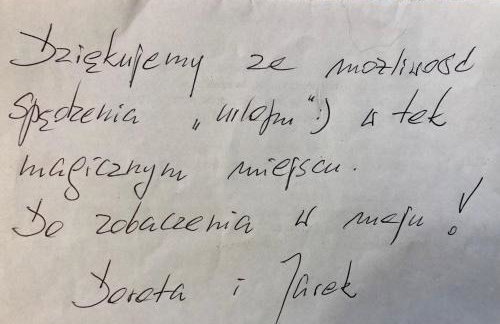 Dziękujemy za możliwość
spędzenia „urlopu“:) w tak
magicznym miejscu.
Do zobaczenia w maju!
Dorota i Jarek